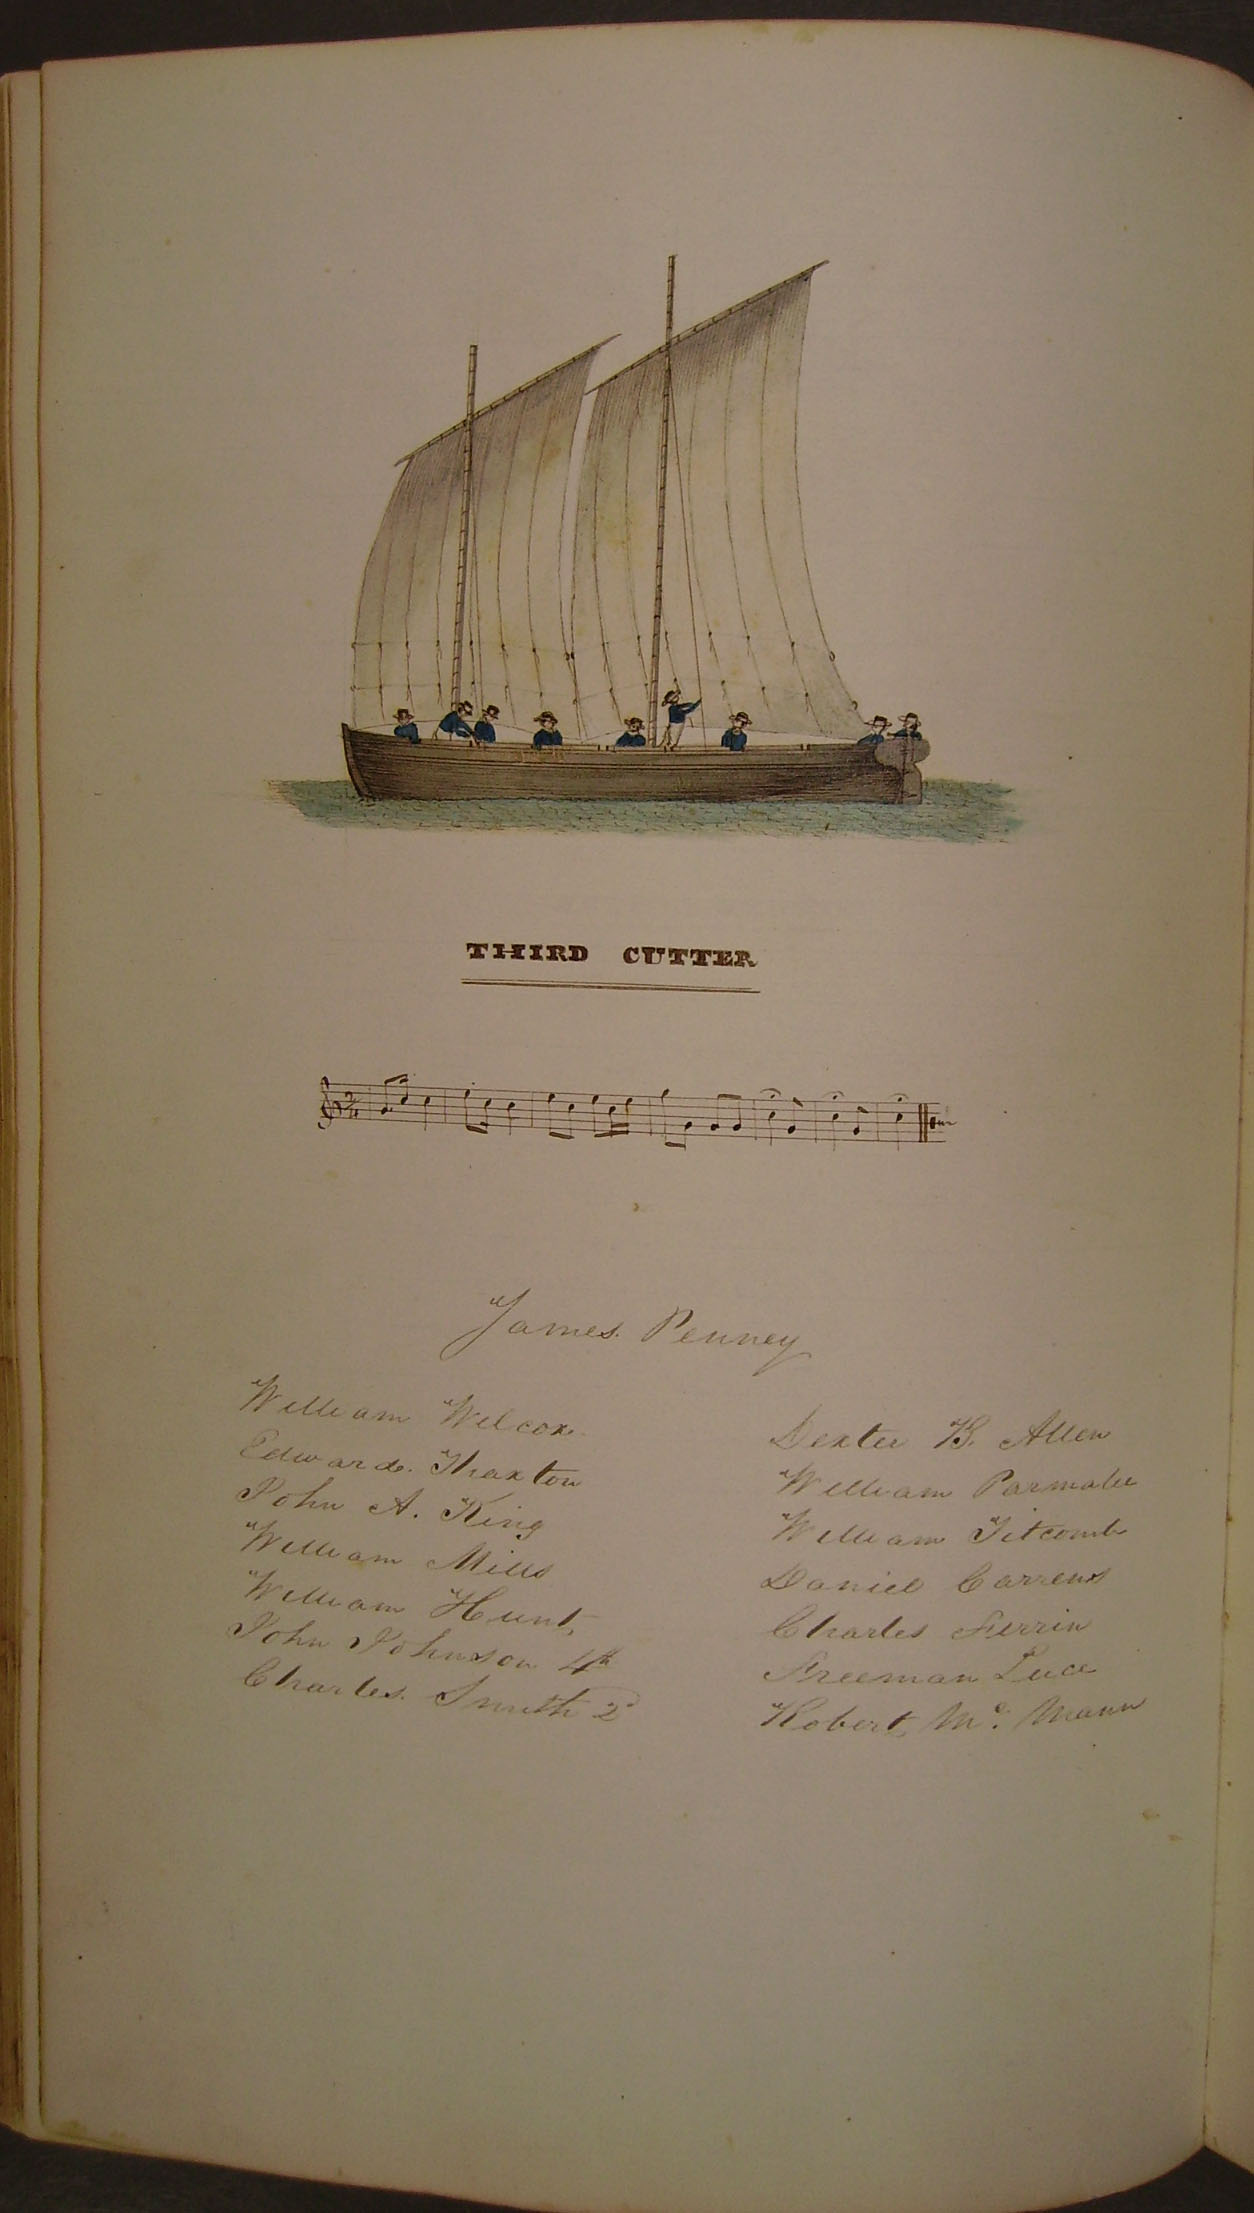 THIRD CUTTER
James Penney
William Wilcox
Edward Thaxton
John A. King
William Mills
William Hunt
John Johnson 4th
Charles Smith 2d
Dexter B. Allen
William Parmalee
William Titcomb
Daniel Carrens
Charles Ferrin
Freeman Luce
Robert Mc. Mann